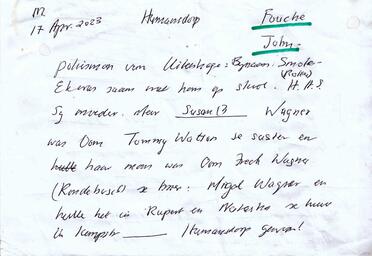 M
17 Apr. 2023 Humansdorp Fouche
John.
polisman van Uitenhage: Bynaam: Smoke-
Ek was saam met hom op skool. H.H.S
Sy moeder, Mev Susan(?) Wagner
was Oom Tommy Watson se suster en
haar man was Oom Freek Wagner
(Rondebosch) se broer: Migal Wagner en
hulle het in Rupert en Natasha se huis
Humansdorp gewoon!